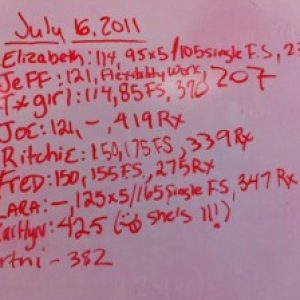 July 16, 2011
Elizabeth: 114, 95x5/105single F.S, 23
Jeff: 121, Flexibility Work, 207
Txgirl: 114, 85FS, 370
Joe: 121, -, 419Rx
Ritchie: 150, 175FS, 339Rx
Fred: 150, 155FS, 275Rx
Lara: -, 125x5/165single F.S, 347Rx
Kaitlyn: 425 (☺ she's 11!)
rtni - 382